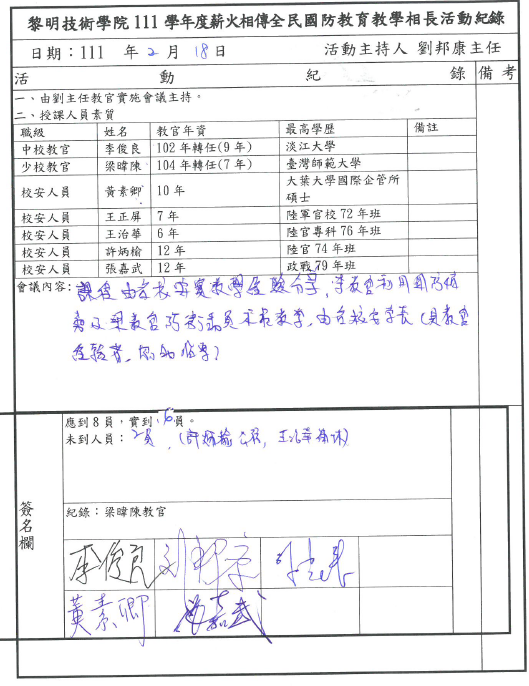 黎明技術學院 111 學年度薪火相傳全民國防教育教學相長活動紀錄
日期：111 年 2 月 18 日 活動主持人 劉邦康主任
活動紀錄 備考
一、由劉主任教官實施會議主持。
二、授課人員素質
職級 姓名 教官年資 最高學歷 備註
中校教官 李俊良 102 年轉任(9 年) 淡江大學
少校教官 梁暐陳 104 年轉任(7 年) 臺灣師範大學
校安人員 黃素卿 10 年 大葉大學國際企管所
碩士
校安人員 王正屏 7 年 陸軍官校 72 年班
校安人員 王治華 6 年 陸官專科 76 年班
校安人員 許炳榆 12 年 陸官 74 年班
校安人員 張嘉武 12 年 政戰 79 年班
會議內容：課程 由 教學經驗分享
教官 教學，由 學長(具教官
經驗者，
應到 8 員，實到 6 員。
未到人員：2員，(許炳榆公假，王治華
簽名欄
紀錄：梁暐陳教官
李俊良
黃素卿 嘉武